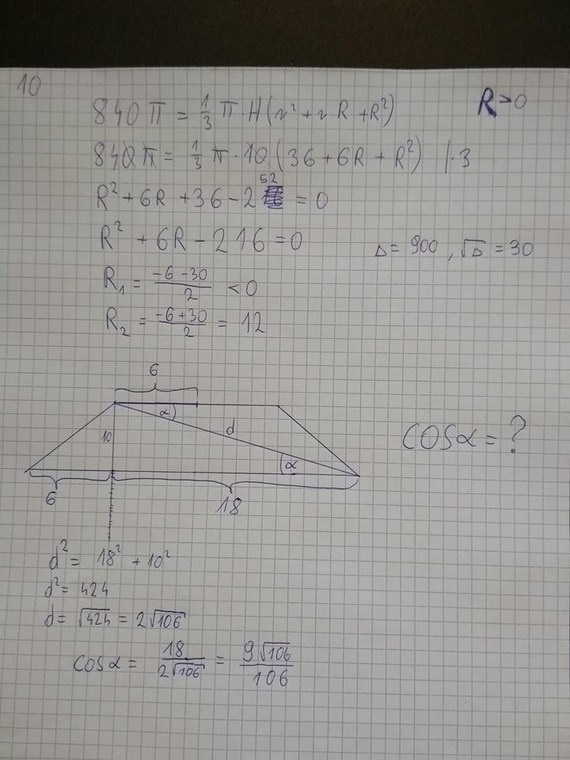 10
840π = 1/3 π · H(r² + r R + R²)
R > 0
840π = 1/3 π · 10 (36 + 6R + R²) | · 3
R² + 6R + 36 - 252 = 0
R² + 6R - 216 = 0
Δ = 900 , √Δ = 30
R₁ = (-6 - 30)/2 < 0
R₂ = (-6 + 30)/2 = 12
6
α
d
10
α
cosα = ?
6
18
d² = 18² + 10²
d² = 424
d = √424 = 2√106
cosα = 18/(2√106) = 9√106/106